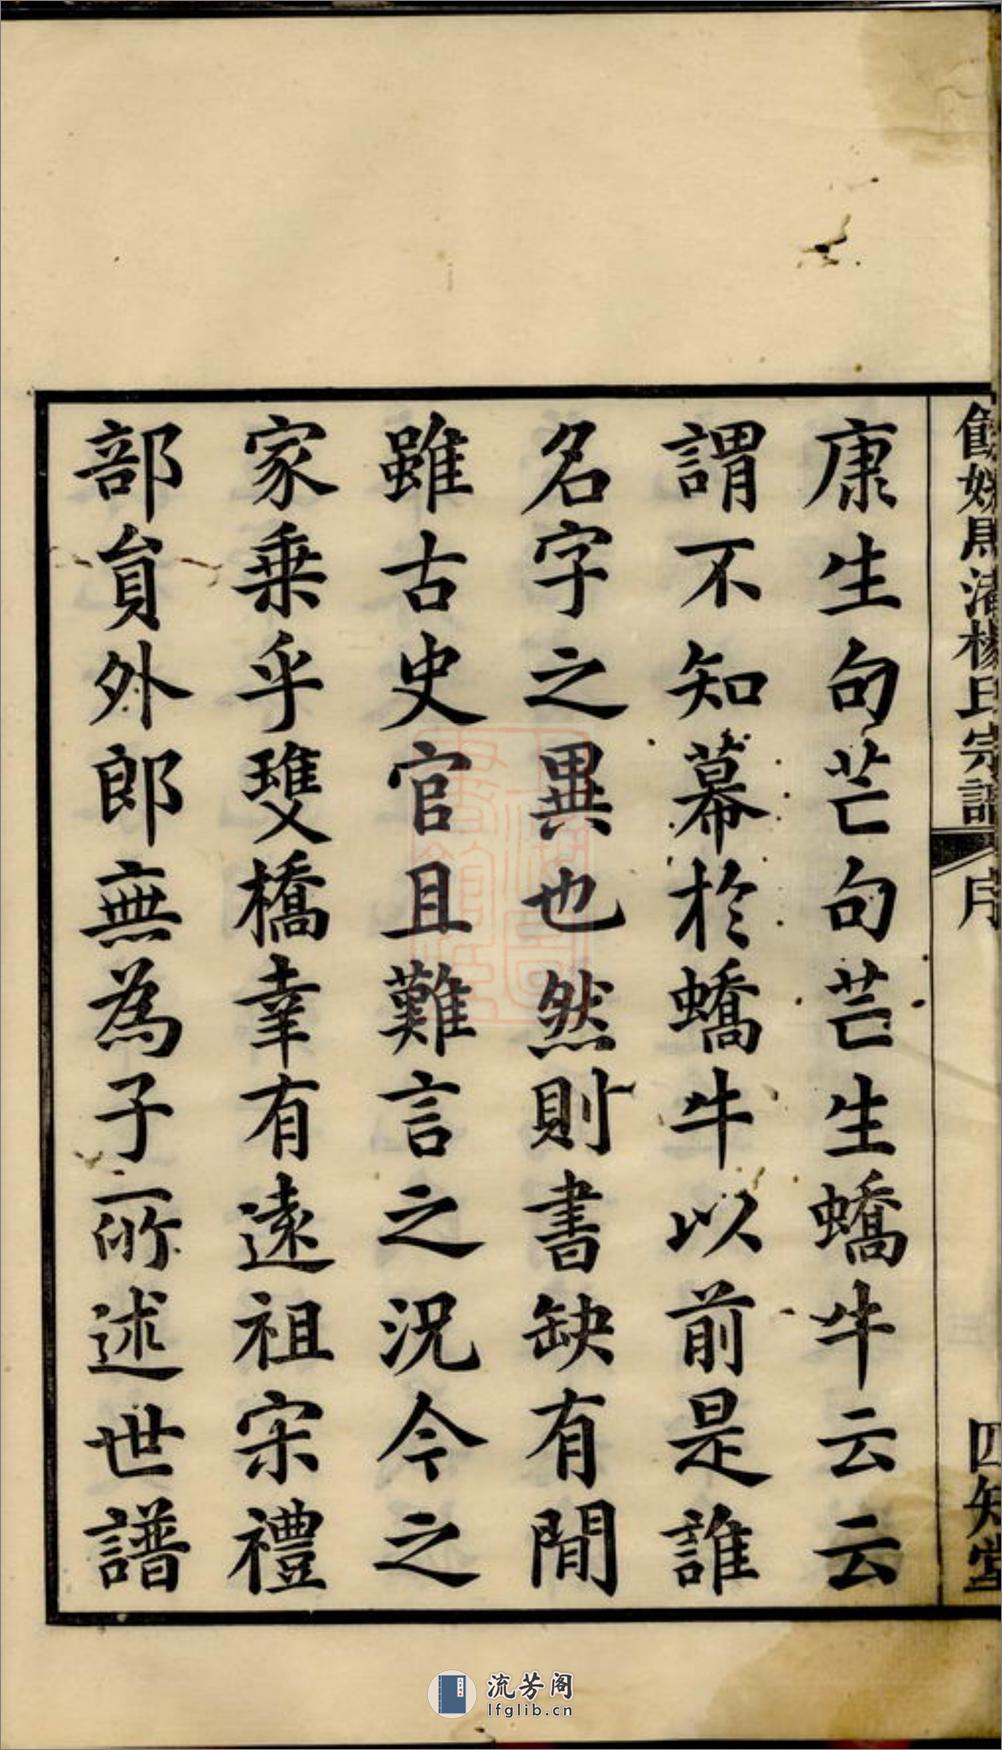 餘姚馬渚楊氏宗譜
序
四知堂
康生句芒句芒生蟜牛云云
謂不知幕於蟜牛以前是誰
名字之異也然則書缺有間
雖古史官且難言之況今之
家乗乎雙橋幸有遠祖宋禮
部貟外郎無為子所述世譜
流芳阁
lfglib.cn